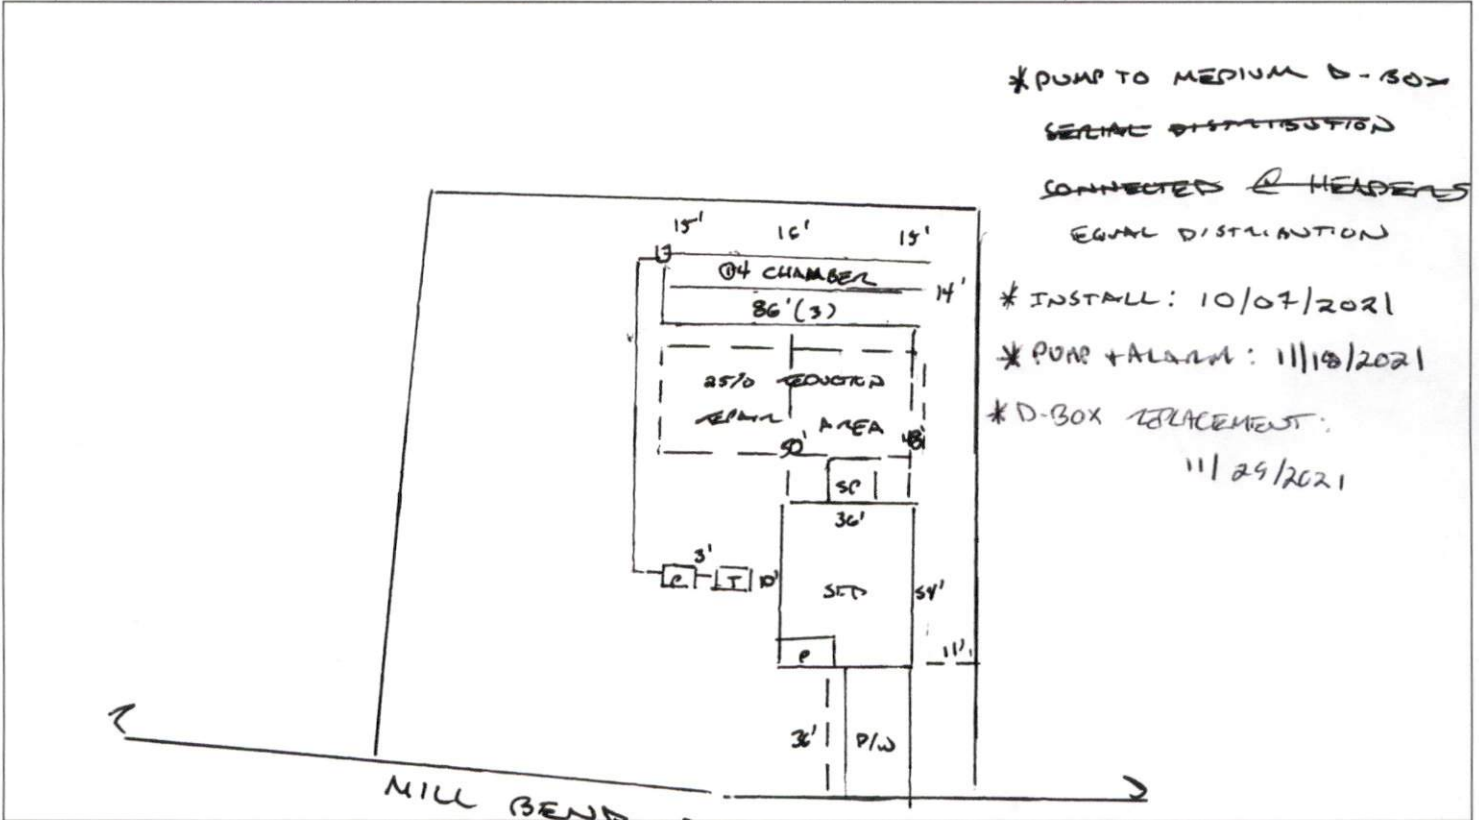 *PUMP TO MEDIUM D-BOX
SERIAL DISTRIBUTION
CONNECTED @ HEADERS
EQUAL DISTRIBUTION
* INSTALL: 10/07/2021
* PUMP + ALARM: 11/18/2021
* D-BOX REPLACEMENT:
11/29/2021
15' 16' 15'
Q4 CHAMBER
14'
86'(3)
25% REDUCTION
REPAIR AREA
50' 48'
SP
36'
3'
P T 10'
SFD 54'
P
11'
36' D/W
MILL BEND